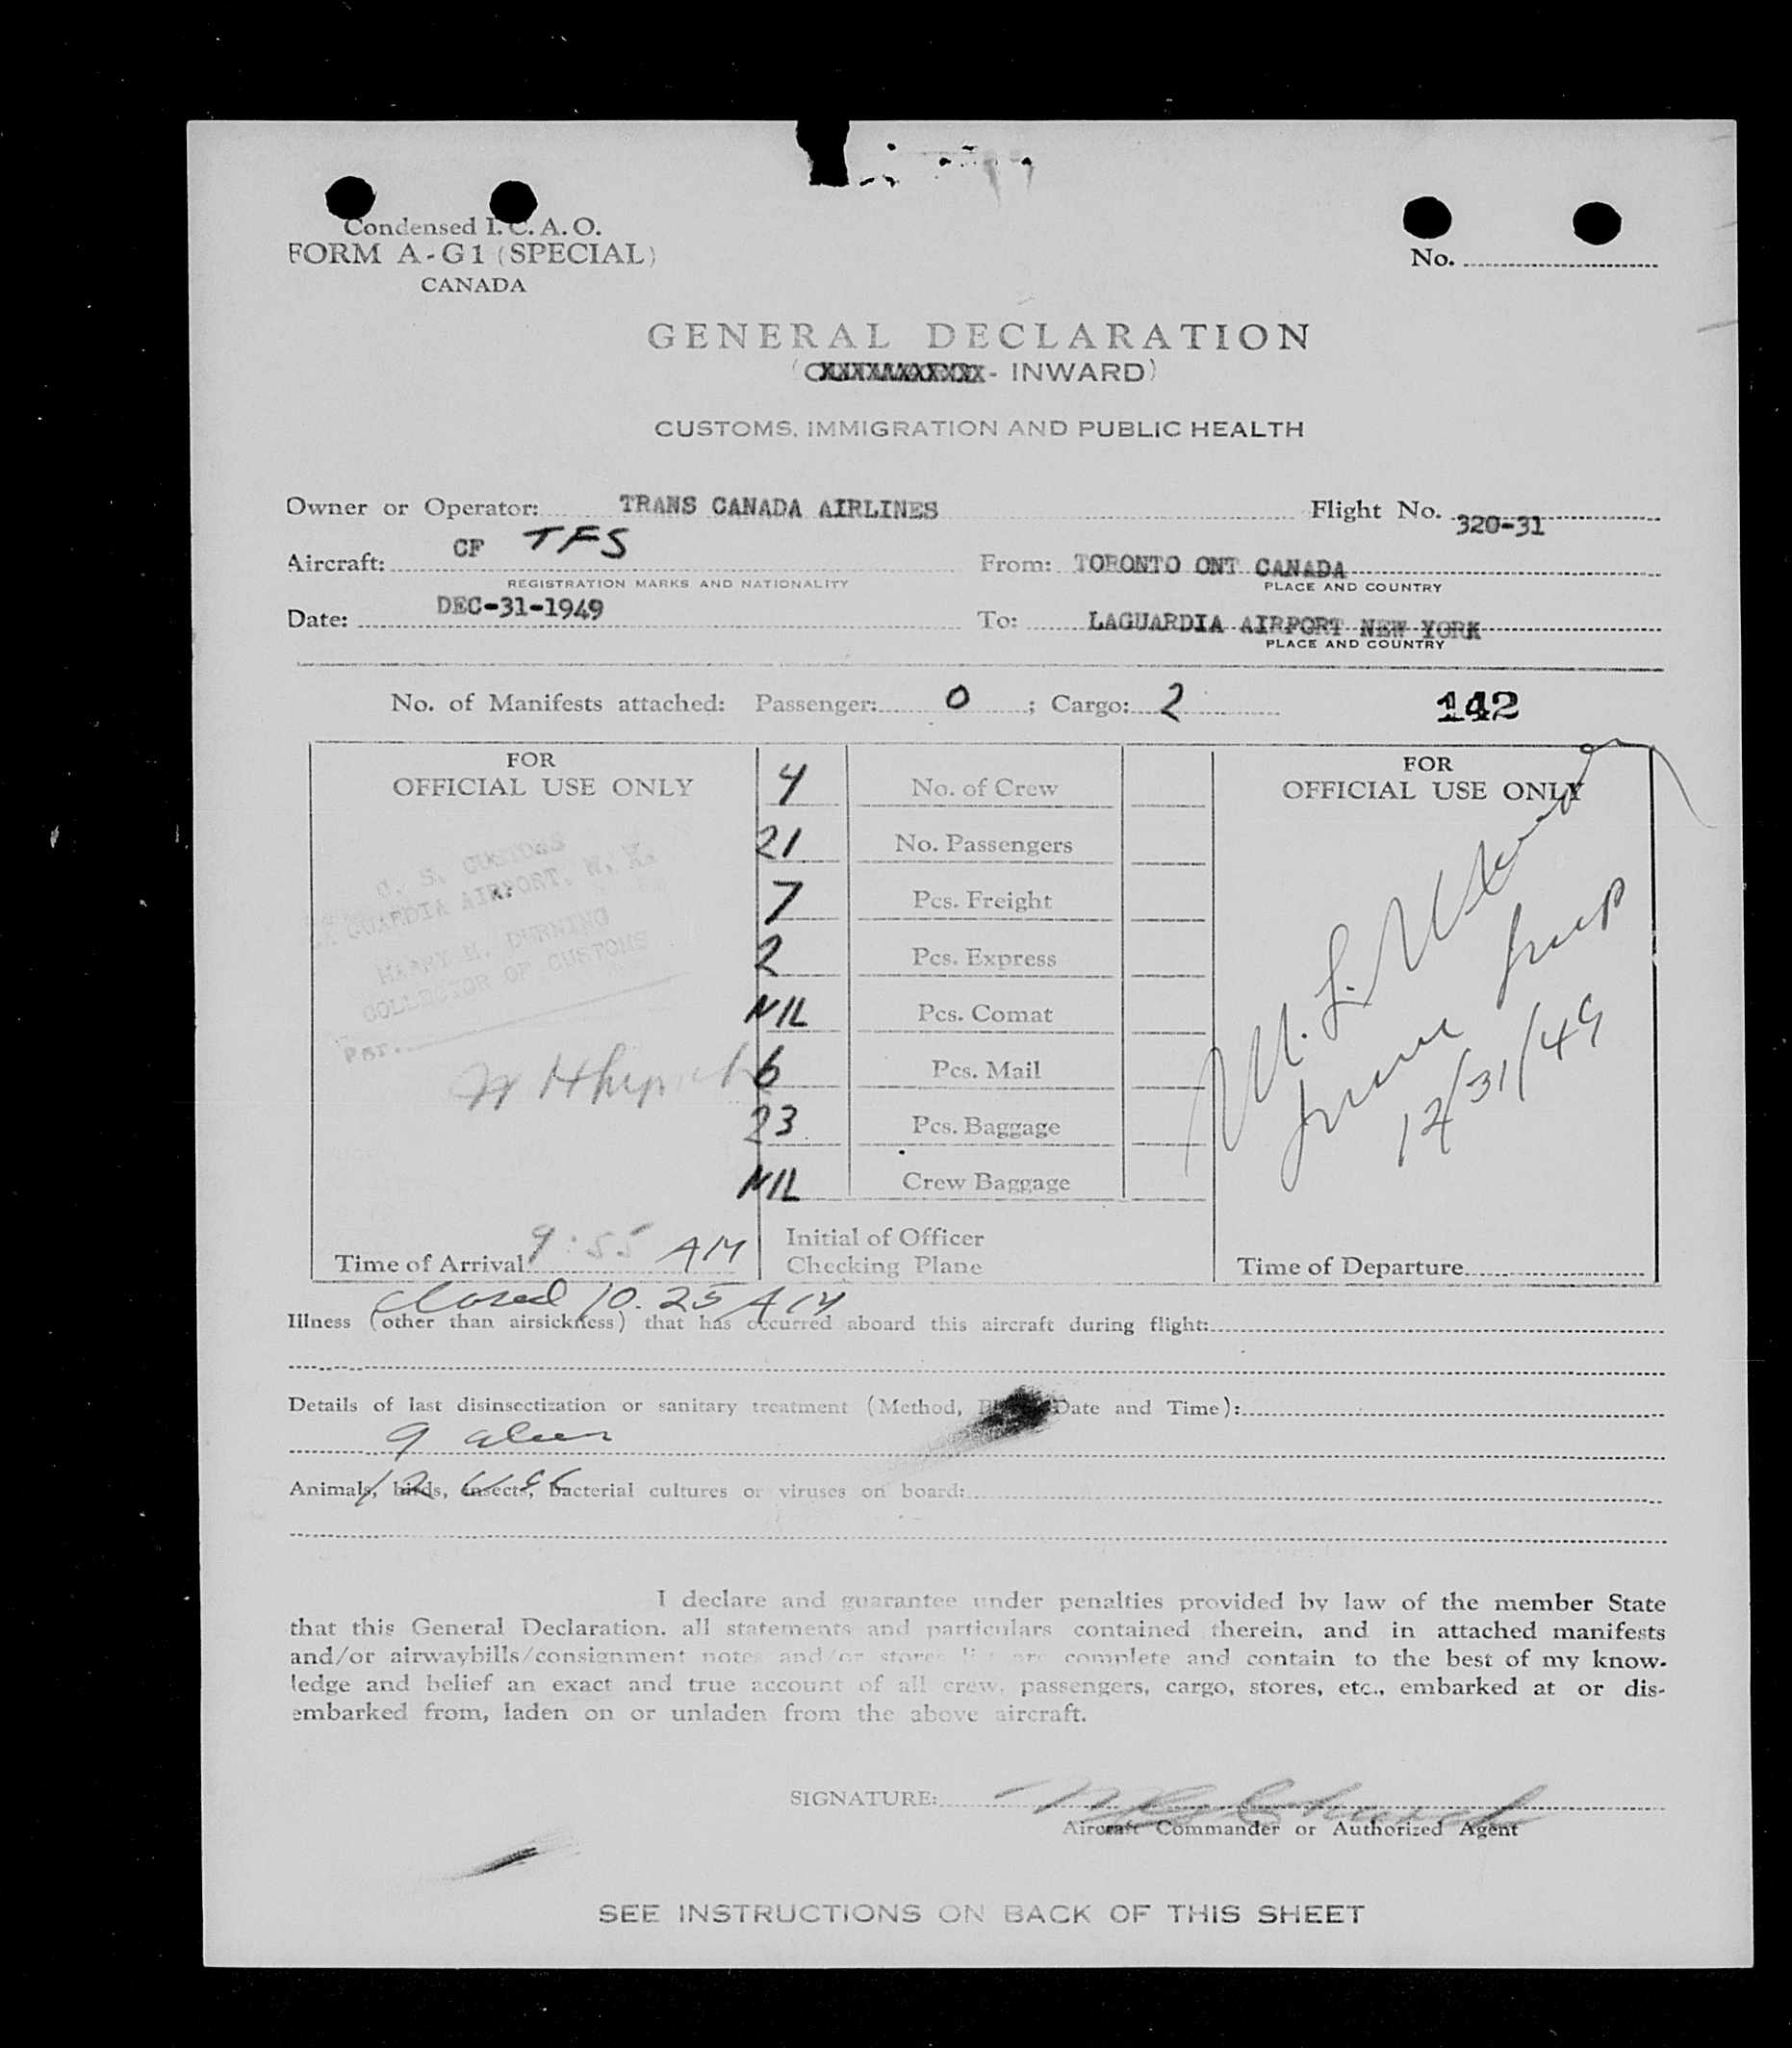 Condensed I.C.A.O.
FORM A-G1 (SPECIAL)
CANADA
No.
GENERAL DECLARATION
- INWARD)
CUSTOMS, IMMIGRATION AND PUBLIC HEALTH
Owner or Operator: TRANS CANADA AIRLINES Flight No. 320-31
Aircraft: CF TFS From: TORONTO ONT CANADA
REGISTRATION MARKS AND NATIONALITY PLACE AND COUNTRY
Date: DEC-31-1949 To: LAGUARDIA AIRPORT NEW YORK
PLACE AND COUNTRY
No. of Manifests attached: Passenger: 0 ; Cargo: 2 142
FOR
OFFICIAL USE ONLY
U. S. CUSTOMS
LA GUARDIA AIRPORT, N. Y.
HARRY M. DURNING
COLLECTOR OF CUSTOMS
Per.
Time of Arrival 9:55 AM
closed 10.25 AM
4 No. of Crew
21 No. Passengers
7 Pcs. Freight
2 Pcs. Express
NIL Pcs. Comat
6 Pcs. Mail
23 Pcs. Baggage
NIL Crew Baggage
Initial of Officer
Checking Plane
FOR
OFFICIAL USE ONLY
12/31/49
Time of Departure
Illness (other than airsickness) that has occurred aboard this aircraft during flight:
Details of last disinsectization or sanitary treatment (Method, Date and Time):
9
Animals, birds, insects, bacterial cultures or viruses on board:
12
I declare and guarantee under penalties provided by law of the member State
that this General Declaration, all statements and particulars contained therein, and in attached manifests
and/or airwaybills/consignment notes and/or stores list are complete and contain to the best of my know-
ledge and belief an exact and true account of all crew, passengers, cargo, stores, etc., embarked at or dis-
embarked from, laden on or unladen from the above aircraft.
SIGNATURE:
Aircraft Commander or Authorized Agent
SEE INSTRUCTIONS ON BACK OF THIS SHEET